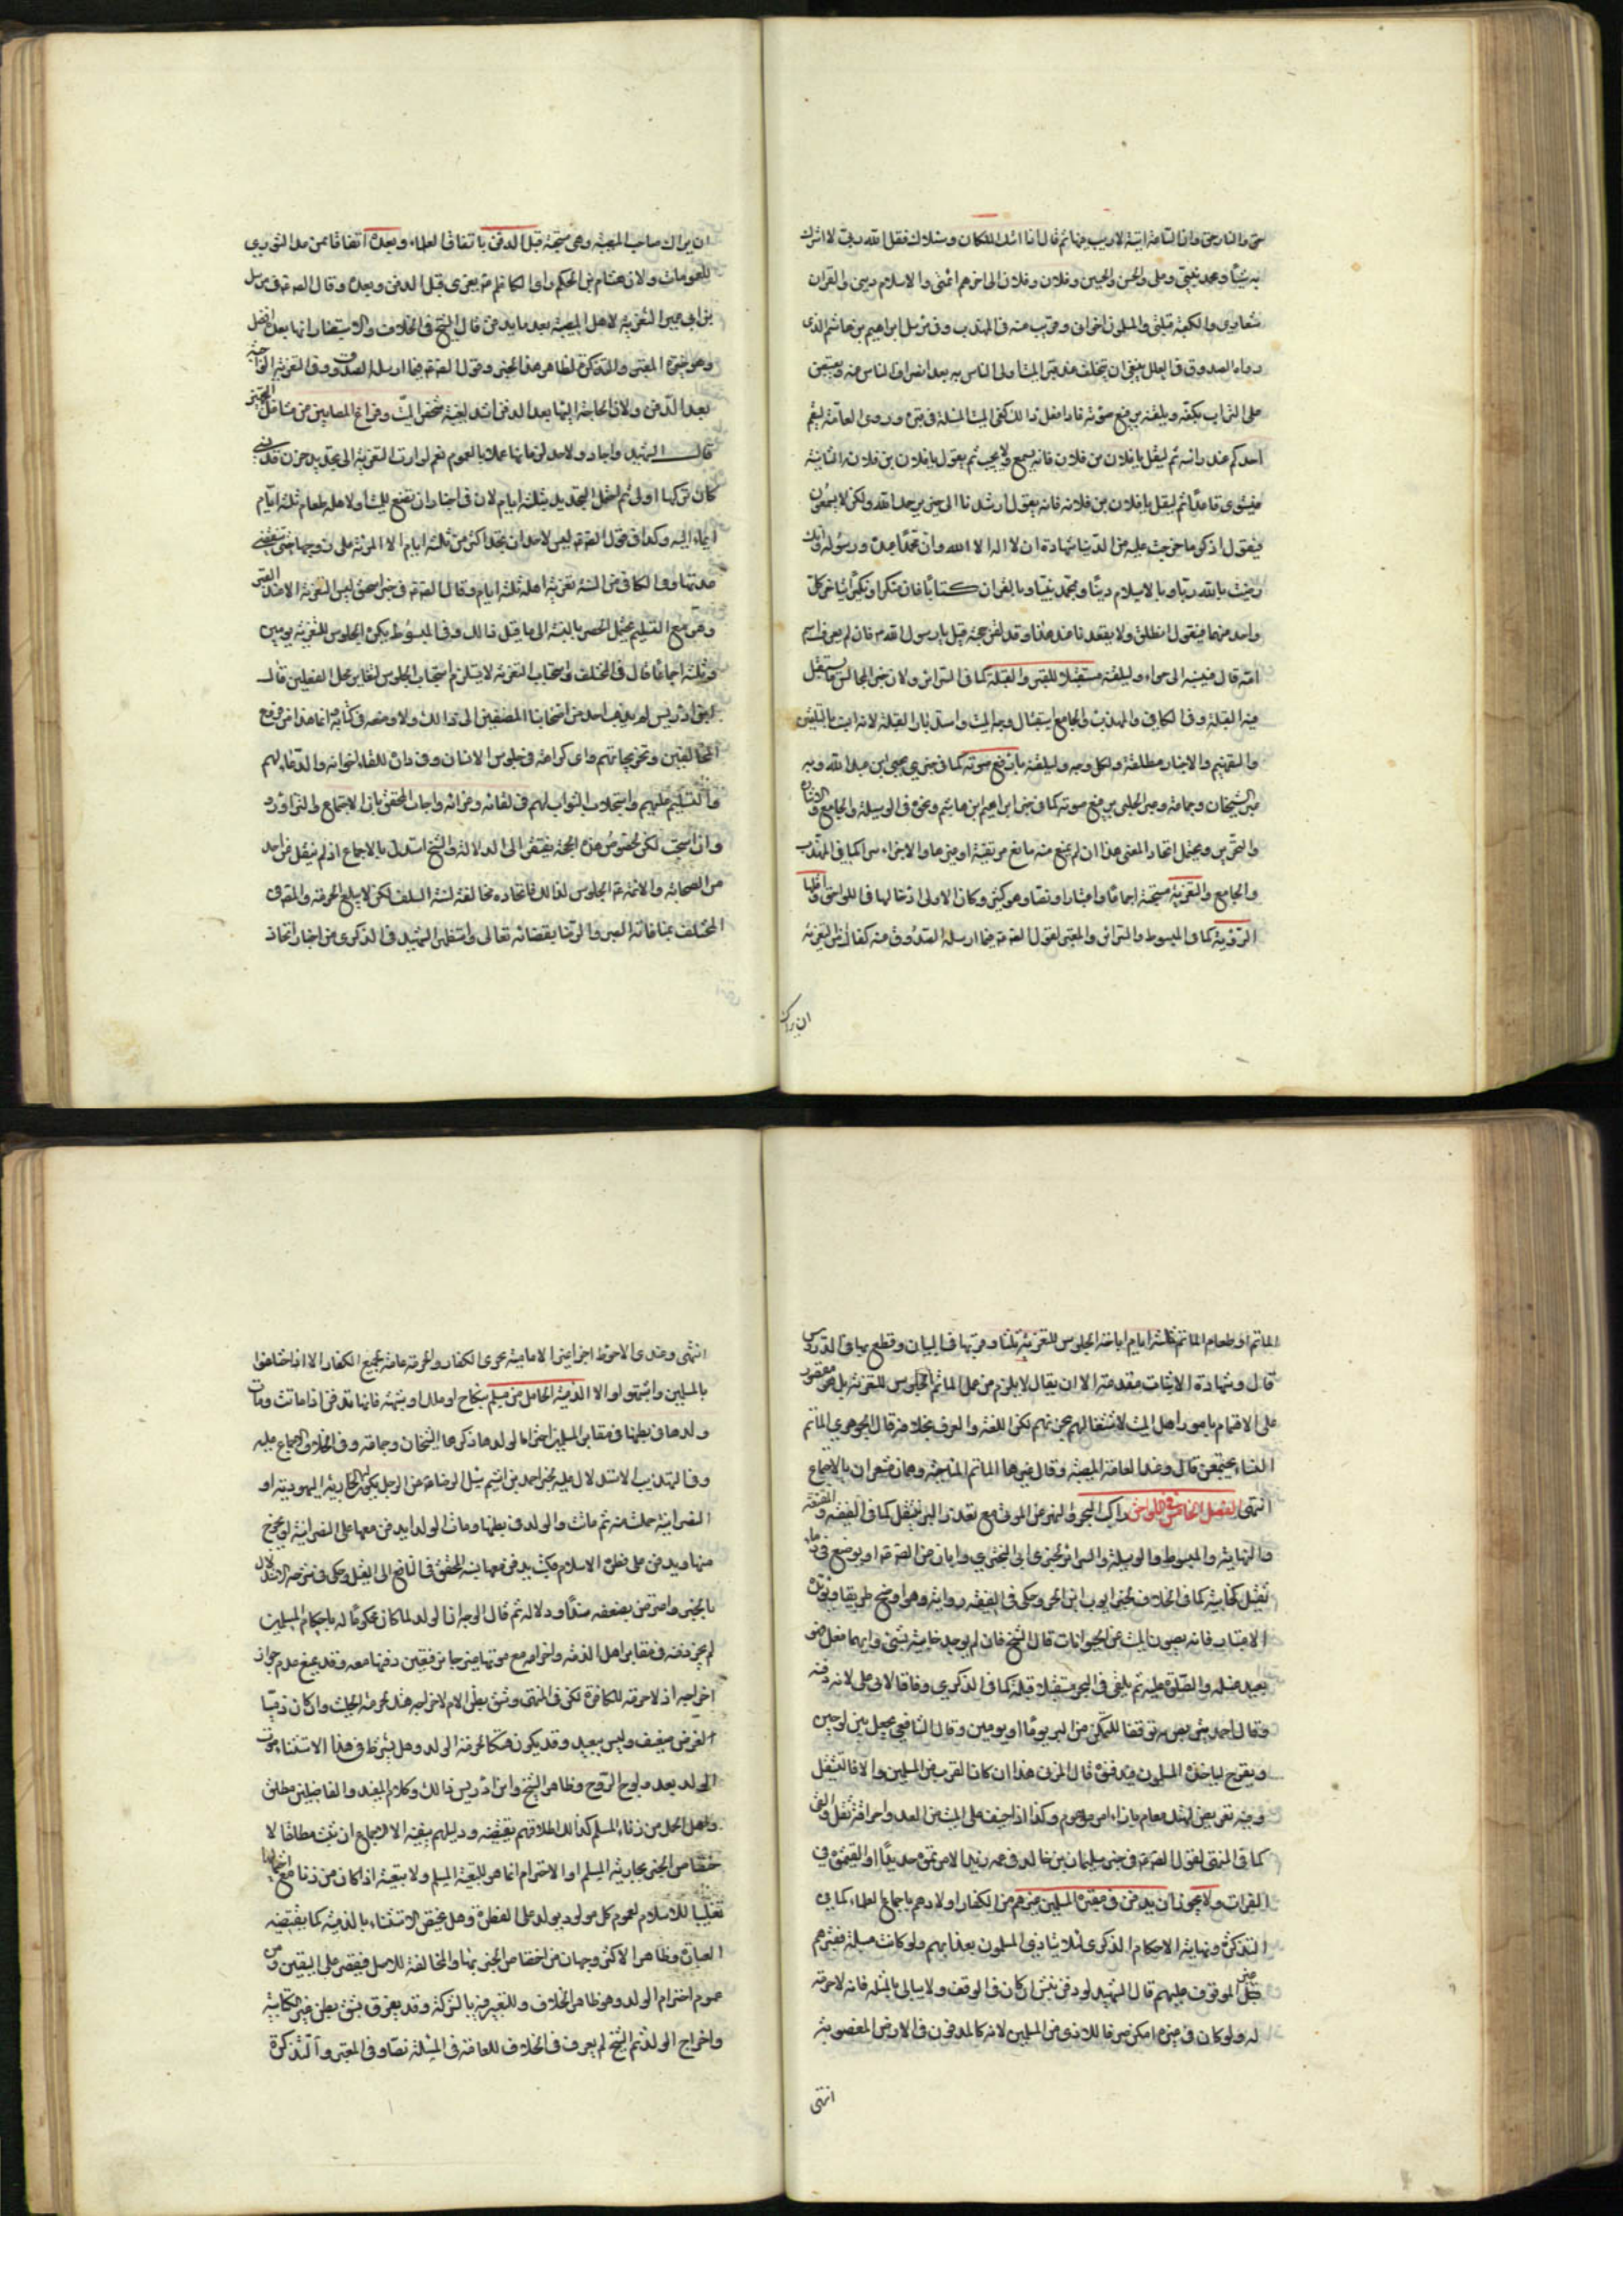 حق والنار حق وان الساعة اتية لا ريب فيها ثم قال اذا اتاك الملكان وسئلاك فقل الله ربي لا اشرك
به شيئا ومحمد نبيي وعلي والحسن والحسين وفلان وفلان الى اخرهم ائمتي والاسلام ديني والقران
شعاري والكعبة قبلتي والمسلمون اخواني وقريب منه في المهذب وفي مرسل ابراهيم بن هاشم الذي
رواه الصدوق في العلل ينبغي ان يتخلف عند قبر الميت اولى الناس به بعد انصراف الناس عنه ويقبض
على التراب بكفيه ويلقنه برفيع صوته فاذا فعل ذلك كفى الميت المسئلة في قبره وروى العامة ليقم
احدكم عند راسه ثم ليقل يا فلان بن فلان فانه يسمع ولا يجيب ثم يقول يا فلان بن فلان الثانية
فيستوي قاعدا ثم ليقل يا فلان بن فلانه فانه يقول ارشدنا الى خير يرحمك الله ولكن لا يسمعون
فيقول اذكر ما خرجت عليه من الدنيا شهادة ان لا اله الا الله وان محمدا عبده ورسوله وانك
رضيت بالله ربا وبالاسلام دينا وبمحمد نبيا وبالقران كتابا فان منكرا ونكيرا يتاخر كل
واحد منهما فيقول انطلق ولا يقعدنا عند هذا وقد لقن حجته قيل يا رسول الله فان لم يعرف اسم
امه قال فينسبه الى حواء وليلقنه مستقبلا للقبر والقبلة كما في السرائر ولان خير المجالس ما يستقبل
فيه القبلة وفي الكافي والمهذب والجامع استقبال وجه الميت واستدبار القبلة لانه انسب بالتلقين
والتفهيم والاخبار مطلقة ولكل وجه وليلقنه بارفع صوته كما في خبري يحيى ابن عبد الله وبه
عبر الشيخان وجماعة وعبر الحلبي برفيع صوته كما في خبر ابراهيم ابن هاشم ونحوه في الوسيلة والجامع والاشارة
والتحرير ويحتمل اتحاد المعنى هذا ان لم يمنع منه مانع من تقية او غيرها والا اجزاء سرا كما في المهذب
والجامع والتعزية مستحبة اجماعا واعتبارا ونصا وهو كثير وكان الاولى ادخالها في اللواحق واقلها
الرؤية كما في المبسوط والسرائر والمعتبر لقول الصادق فيما ارسله الصدوق عنه كفاك من التعزية
ان يراك
ان يراك صاحب المصيبة وهي مستحبة قبل الدفن باتفاق العلماء وبعده اتفاقا ممن عدا الثوري
للعمومات ولان هشام بن الحكم راى الكاظم يعزي قبل الدفن وبعده وقال الصادق في مرسل
بن ابي عمير التعزية لاهل المصيبة بعد ما يدفن قال الشيخ في الخلاف والاستبصار انها بعده افضل
وهو خيرة المعتبر والتذكرة لظاهر هذا الخبر وقول الصادق فيما ارسله الصدوق التعزية الواجبة
بعد الدفن ولان الحاجة اليها بعد الدفن اشد لغيبة شخص الميت وفراغ المصابين من مشاغل التجهيز
قال الشهيد واجاد ولا حد لزمانها عملا بالعموم نعم لو ادت التعزية الى تجديد حزن قد نسي
كان تركها اولى ثم احتمل التحديد بثلثة ايام لان في اخبار ان يصنع للميت او لاهله طعام ثلثة ايام
ايماء اليه وكذا في قول الصادق ليس لاحد ان يحد اكثر من ثلثة ايام الا المرئة على زوجها حتى تنقضي
عدتها وفي الكافي من السنة تعزية اهله ثلثة ايام وقال الصادق في خبر اسحق ليس التعزية الا عند القبر
وهي مع التسليم يحتمل الحصر بالنسبة الى ما قبل ذلك وفي المبسوط يكره الجلوس للتعزية يومين
وثلثة اجماعا قال في المختلف واستحباب التعزية لا يستلزم استحباب الجلوس لتغاير محل الفعلين قال
ابن ادريس لم يذهب احد من اصحابنا المصنفين الى ذلك ولا وضعه في كتابه وانما هذا من فروع
المخالفين وتخريجاتهم واي كراهة في جلوس الانسان في داره للقاء اخوانه والدعاء لهم
والتسليم عليهم واستجلاب الثواب لهم في لقائه وعزائه واجاب المحقق بان الاجتماع والتزاور
وان استحب لكن لخصوص هذه الجهة يفتقر الى الدلالة والشيخ استدل بالاجماع اذ لم ينقل عن احد
من الصحابة والائمة الجلوس لذلك فاتخاذه مخالفة لسنة السلف لكن لا يبلغ الحرمة والمصنف في
المختلف بمنافاته الصبر والرضا بقضائه تعالى واستظهر الشهيد في الذكرى من اخبار اتخاذ
الماتم او طعام الماتم ثلثة ايام اباحة الجلوس للتعزية ثلثا وقربها في البيان وقطع بها في الدروس
قال وشهادة الاثبات مقدمة الا ان يقال لا يلزم من عمل الماتم الجلوس للتعزية بل هو مقصور
على الاهتمام بامور اهل الميت لاشتغالهم بحزنهم لكن اللغة والعرف بخلافه قال الجوهري الماتم
النساء يجتمعن قال وعند العامة المصيبة وقال غيره الماتم المناحة وهما مشعران بالاجتماع
انتهى الفصل الخامس في اللواحق راكب البحر والنهر عن الموت مع تعذر البر يثقل كما في الفقيه والمقنعة
والنهاية والمبسوط والوسيلة والسرائر لخبري ابي البختري وابان عن الصادق او يوضع في وعاء
ثقيل كخابية كما في الخلاف لخبر ايوب ابن الحر وحكى في الفقيه رواية وهو اوضح طريقا
الاعتبار فانه يصون الميت عن الحيوانات قال الشيخ فان لم يوجد خابية يشق وايهما فعل فهو
بعد غسله والصلوة عليه ثم يلقى في البحر مستقبلا قبلة كما في الذكرى وفاقا لابي علي لانه دفنه
وقال احمد يتربص به توقعا للتمكن من البر يوما او يومين وقال الشافعي يجعل بين لوحين
ويطرح لياخذه المسلمون فيدفنوه قال المزني هذا ان كان القرب من المسلمين والا فالتثقيل
وفيه تعريض لهتك معلوم بازاء امر موهوم وكذا اذا خيف على الميت من العدو احراقه ثقل والقي
كما في المنتهى لقول الصادق في خبر سليمان بن خالد في عمه زيد الا اوقرتموه حديدا والقيتموه في
الفرات ولا يجوز ان يدفن في مقبرة المسلمين غيرهم من الكفار او لادهم باجماع العلماء كما في
التذكرة ونهاية الاحكام والذكرى لئلا يتاذى المسلمون بعذابهم ولو كانت مسبلة فغيرهم
غير الموقوف عليهم قال الشهيد لو دفن نبش ان كان في الوقف ولا يبالي بالمثلة فانه لا حرمة
له ولو كان في غيره امكن صرفا للاذى عن المسلمين لانه كالمدفون في الارض المغصوبة
انتهى
انتهى وعندي الاحوط اجراء غير الامامية مجرى الكفار والحرمة عامة لجميع الكفار الا اذا اختلطوا
بالمسلمين واشتبهوا والا الذمية الحامل من مسلم بنكاح او ملك او شبهة فانها تدفن اذا ماتت ومات
ولدها في بطنها في مقابر المسلمين احتراما لولدها ذكرها الشيخان وجماعة وفي الخلاف الاجماع عليه
وفي التهذيب الاستدلال عليه بخبر احمد بن اشيم سئل الرضا عن الرجل يكون له الجارية اليهودية او
النصرانية حملت منه ثم ماتت والولد في بطنها ومات الولد ايدفن معها على النصرانية او يخرج
منها ويدفن على فطرة الاسلام فكتب يدفن معها نسبه المحقق في النافع الى القيل وحكى في شرحه الاستدلال
بالخبر واعترض بضعفه سندا ودلالة ثم قال الوجه ان الولد لما كان محكوما له باحكام المسلمين
لم يجز دفنه في مقابر اهل الذمة واخراجه مع موتها غير جايز فتعين دفنها معه وقد يمنع عدم جواز
اخراجه اذ لا حرمة للكافرة لكن في المنتهى وشق بطن الام لاخراجه هتك لحرمة الميت وان كان ذميا
لغرض ضعيف وليس ببعيد وقد يكون هتكا لحرمة الولد وهل يشترط في هذا الاستثناء موت
الولد بعد ولوج الروح وظاهر الشيخ وابن ادريس ذلك وكلام المفيد والفاضلين مطلق
وهل الحمل من زناء المسلم كذلك اطلاقهم يقتضيه ودليلهم ينفيه الا الاجماع ان ثبت مطلقا لا
ختصاص الخبر بجارية المسلم او الاحترام انما هو لتبعية المسلم ولا تبعية اذا كان من زنا مع احتمالها
تغليبا للاسلام لعموم كل مولود يولد على الفطرة وهل يختص الاستثناء بالذمية كما يقتضيه
العبارة وظاهر الاكثر وجهان من اختصاص الخبر بها والمخالفة للاصل فيقصر على اليقين ومن
عموم احترام الولد وهو ظاهر الخلاف وللتعبير فيه بالمشركة وقد يفرق بشق بطن غير الكتابية
واخراج الولد ثم الشيخ لم يعرف في الخلاف للعامة في المسئلة نصا وفي المعتبر والتذكرة